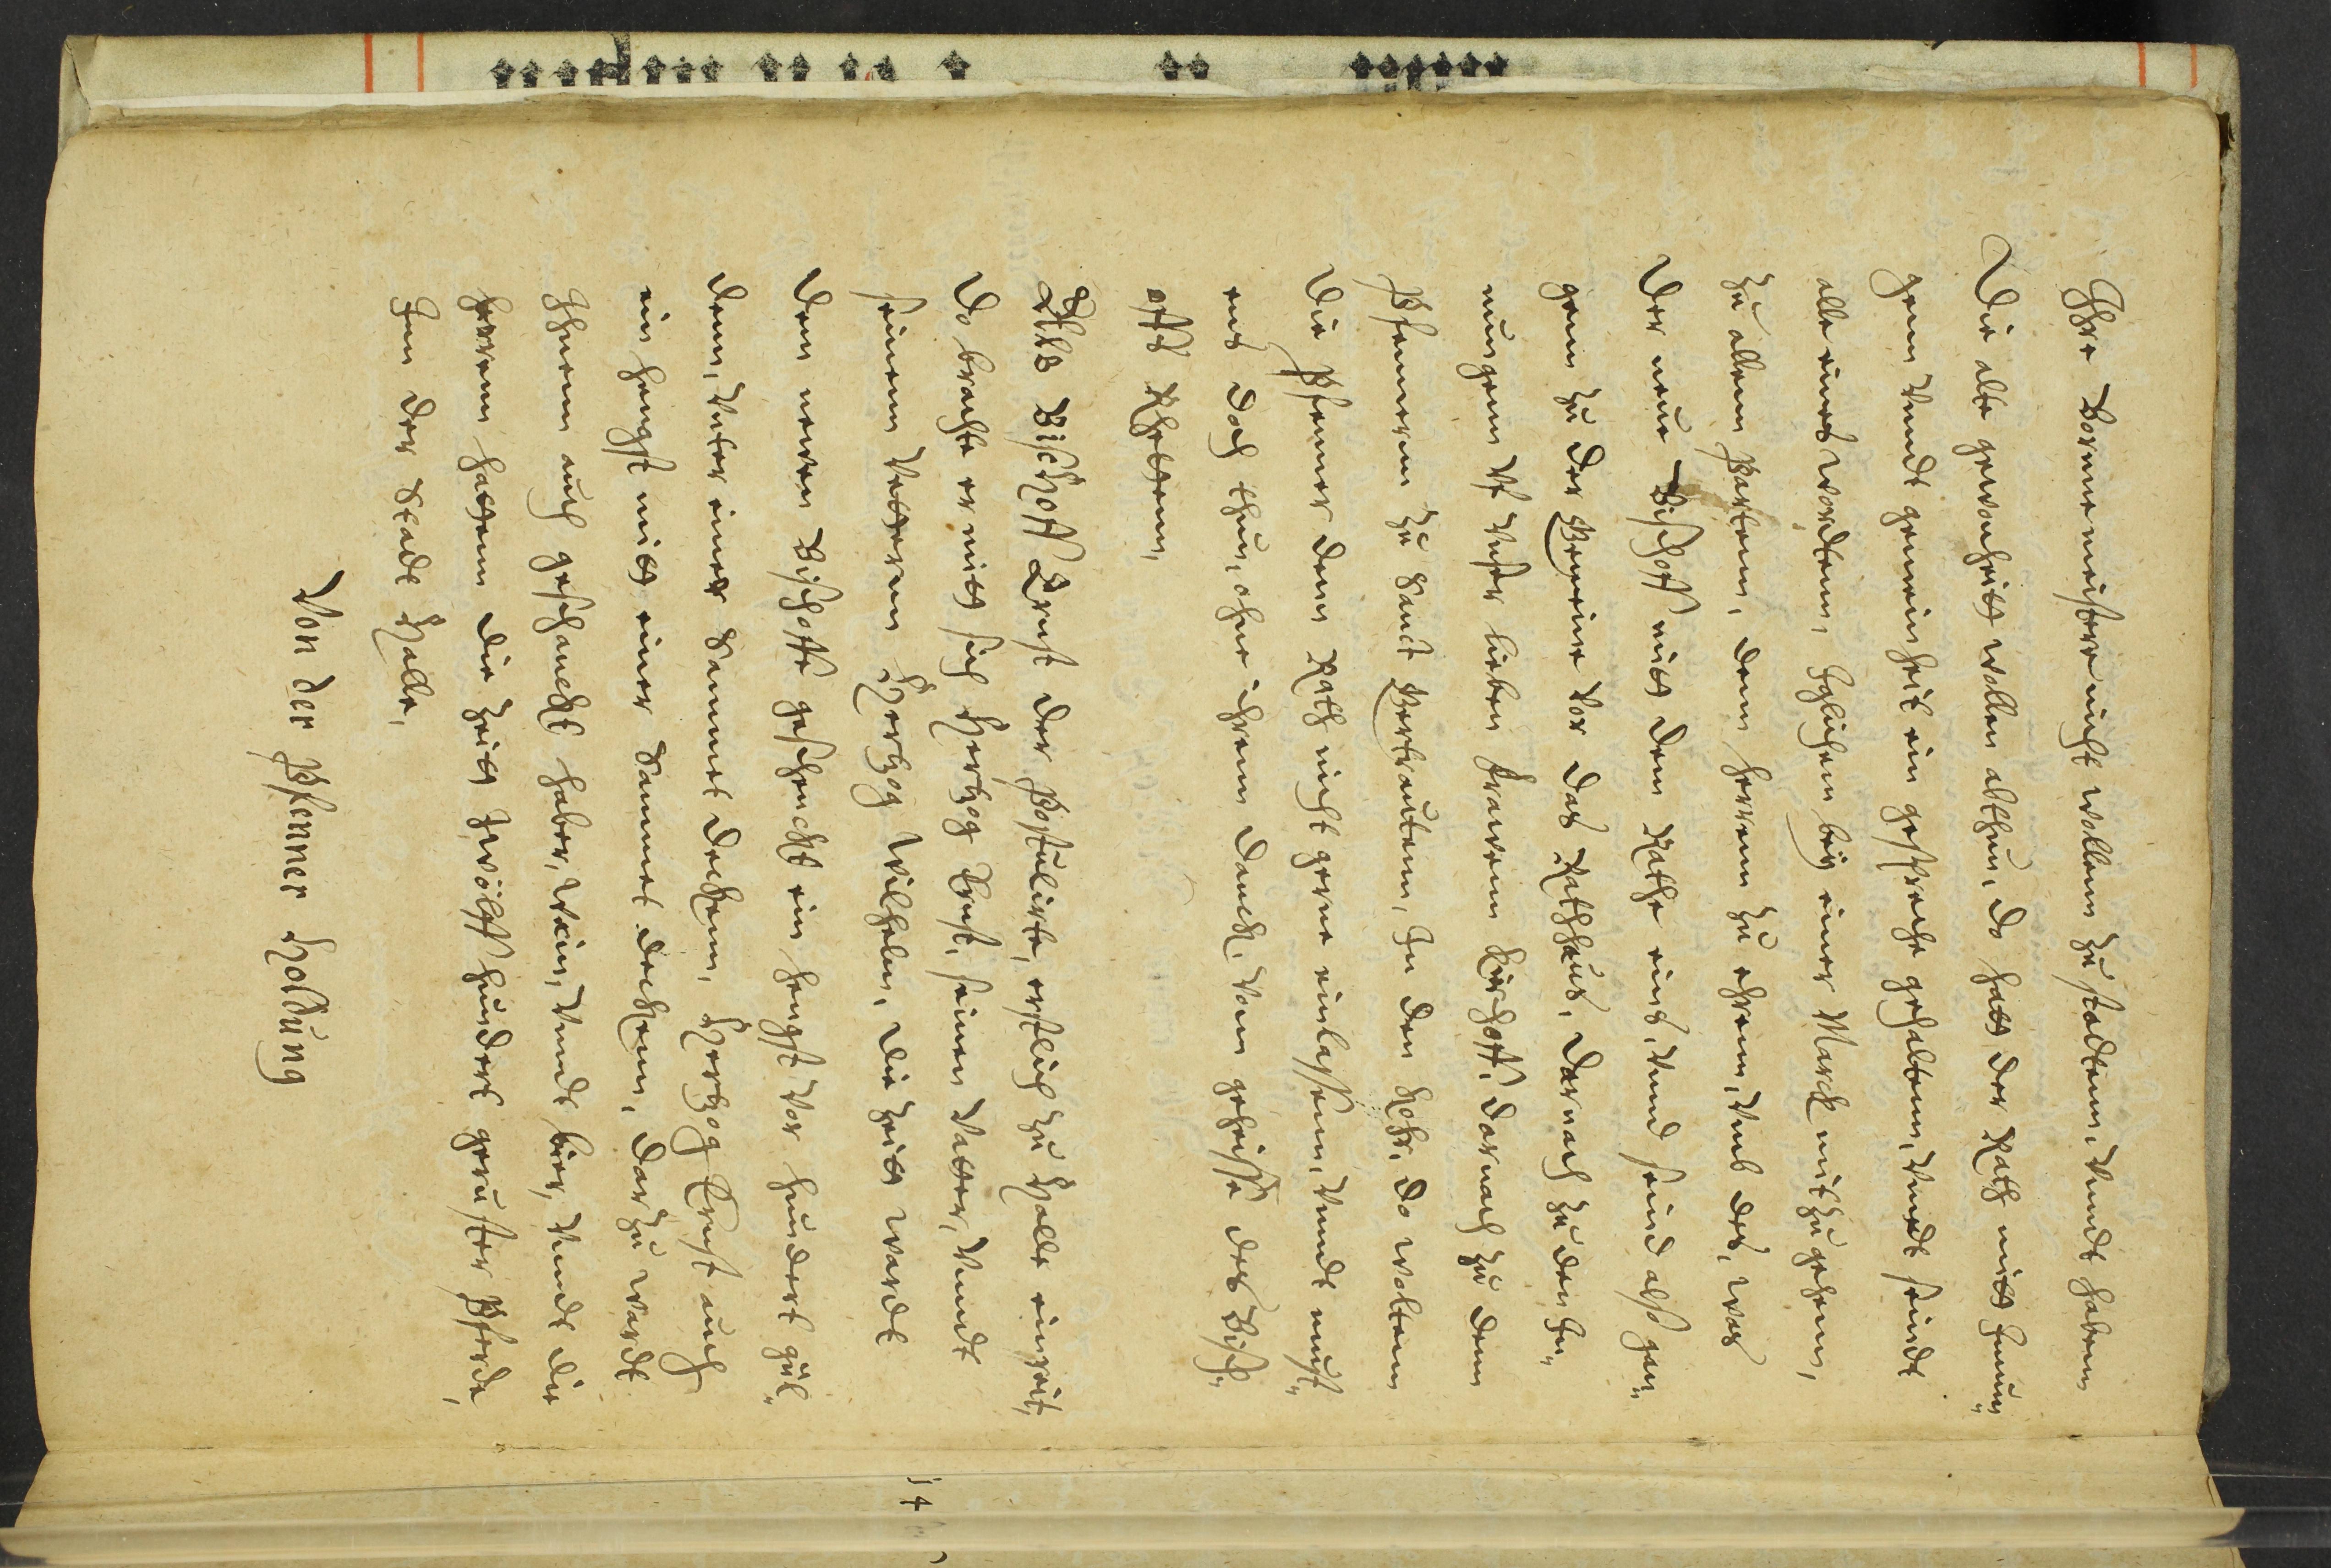 Ihre Bornemeistere nicht wollenn zu stadtenn, Vnndt habenn
Die alte gewonheitt wollen abthun, do hatt der Rath mitt Innun„
genn Vnndt gemeinheit ein gespreche gehaltenn, Vnndt seindt
alle eines wordtenn, Itzlichen bey einer Marck mit zu gehenn,
zu allenn parten, dem herrenn zu ehrenn, Vmb des, was
Der neue Bischoff mitt dem Rathe eins, Vnnd seind also gan„
genn zu der Gemeine vor das Rathhaus, darnach zu den In„
nungenn Vf Vnser lieben frawenn Kirchoff, darnach zu denn
Pfennern zu Sanct Gertrauten, In den Kohr, do woltenn
Die Pfenner denn Rath nicht gerne einlassenn, Vnndt must„
ens doch thun, ohne ihrenn danck, von geheisse des Bisch„
offs Rhetten,
Als Bischoff Ernst der postulirte, erstlich zu Halle einreit,
Do brachte er mitt sich Hertzog Ernst, seinen Vatter, Vnndt
seinen Vettern Hertzog Wilhelm, die zeitt wardt
dem newen Bischoffe geschenckt ein hengst vor hundert gül„
denn, Vnter einer Sammet deckenn, Hertzog Ernst auch
ein hengst mitt einer Sammet deckenn, darzu wardt
Ihnenn auch geschanckt haber, Wein, Vnndt bier, Vnndt die
herrenn hattenn die zeitt zwölff hundert geruster Pferde,
Inn der Stadt Halle,
Von der Pfenner Holdung
14